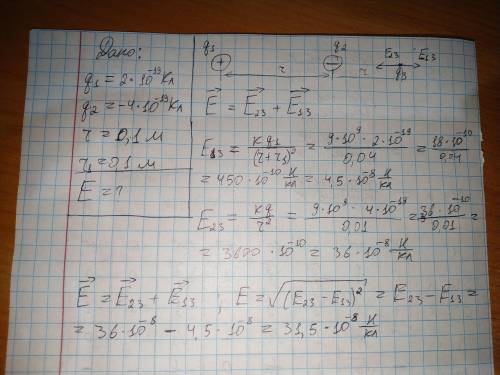 Дано:
q₁ = 2·10⁻¹⁹ Кл
q₂ = -4·10⁻¹⁹ Кл
r = 0,1 м
r₁ = 0,1 м
E = ?
q₁ q₂ E₂₃ E₁₃
+ − r q₃
r
E⃗ = E⃗₂₃ + E⃗₁₃
E₁₃ = kq₁/(r+r₁)² = 9·10⁹·2·10⁻¹⁹/0,04 = 18·10⁻¹⁰/0,04
= 450·10⁻¹⁰ Н/Кл = 4,5·10⁻⁸ Н/Кл
E₂₃ = kq/r² = 9·10⁹·4·10⁻¹⁹/0,01 = 36·10⁻¹⁰/0,01 =
= 3600·10⁻¹⁰ = 36·10⁻⁸ Н/Кл
E⃗ = E⃗₂₃ + E⃗₁₃ ; E = √(E₂₃ − E₁₃)² = E₂₃ − E₁₃ =
= 36·10⁻⁸ − 4,5·10⁻⁸ = 31,5·10⁻⁸ Н/Кл